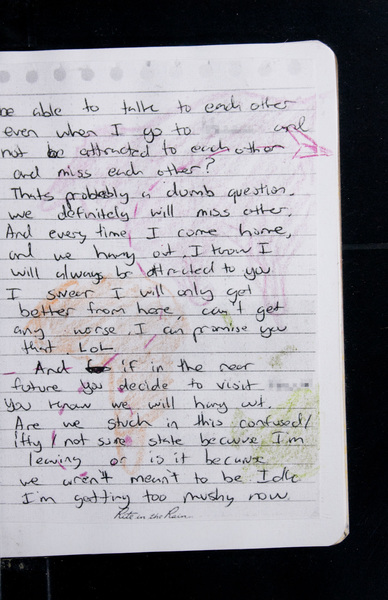 be able to talk to each other
even when I go to and
not be attracted to each other
and miss each other?
Thats probably a dumb question,
we definitely will miss other.
And every time I come home,
and we hang out, I know I
will always be attracted to you
I swear I will only get
better from here, can't get
any worse, I can promise you
that. LoL
And if in the near
future you decide to visit
You know we will hang out.
Are we stuck in this confused/
iffy/not sure state because I'm
leaving or is it because
we aren't meant to be Idk
I'm getting too mushy now
Rite in the Rain